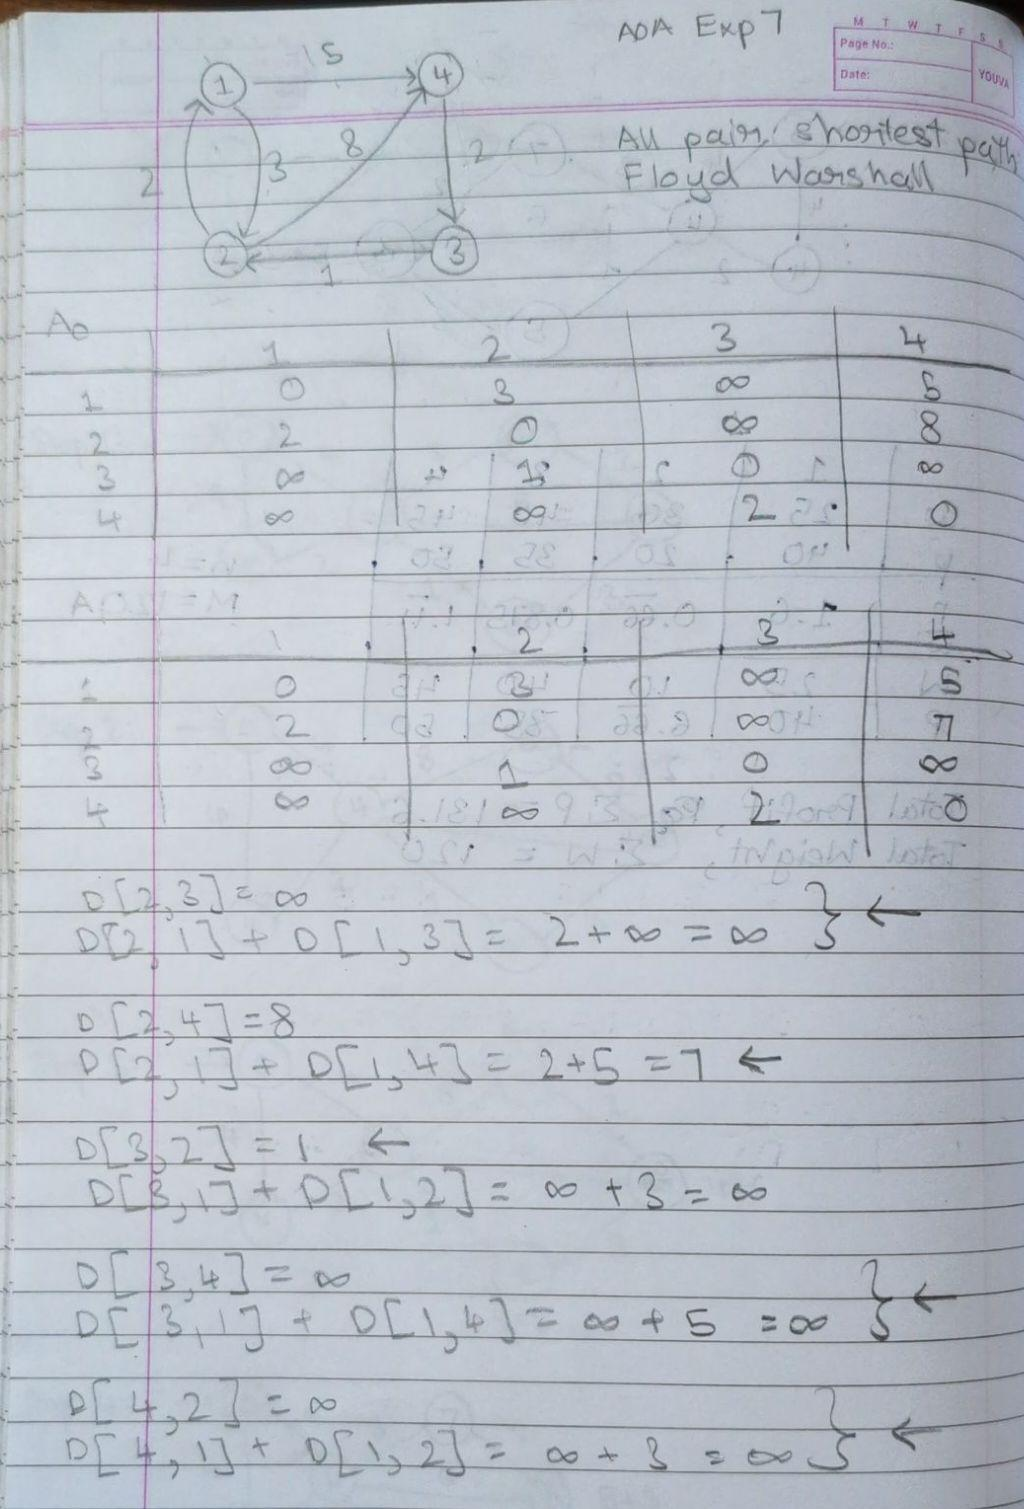 AOA Exp 7
M T W T F S S
Page No.:
Date:
YOUVA
All pair shortest path
Floyd Warshall
1 5 4
2 3 8 2
2 1 3
A0
1 2 3 4
1 0 3 ∞ 5
2 2 0 ∞ 8
3 ∞ 1 0 ∞
4 ∞ ∞ 2 0
1 2 3 4
1 0 3 ∞ 5
2 2 0 ∞ 7
3 ∞ 1 0 ∞
4 ∞ ∞ 2 0
D[2,3] = ∞
D[2,1] + D[1,3] = 2 + ∞ = ∞ } ←
D[2,4] = 8
D[2,1] + D[1,4] = 2+5 = 7 ←
D[3,2] = 1 ←
D[3,1] + D[1,2] = ∞ + 3 = ∞
D[3,4] = ∞
D[3,1] + D[1,4] = ∞ + 5 = ∞ } ←
D[4,2] = ∞
D[4,1] + D[1,2] = ∞ + 3 = ∞ } ←